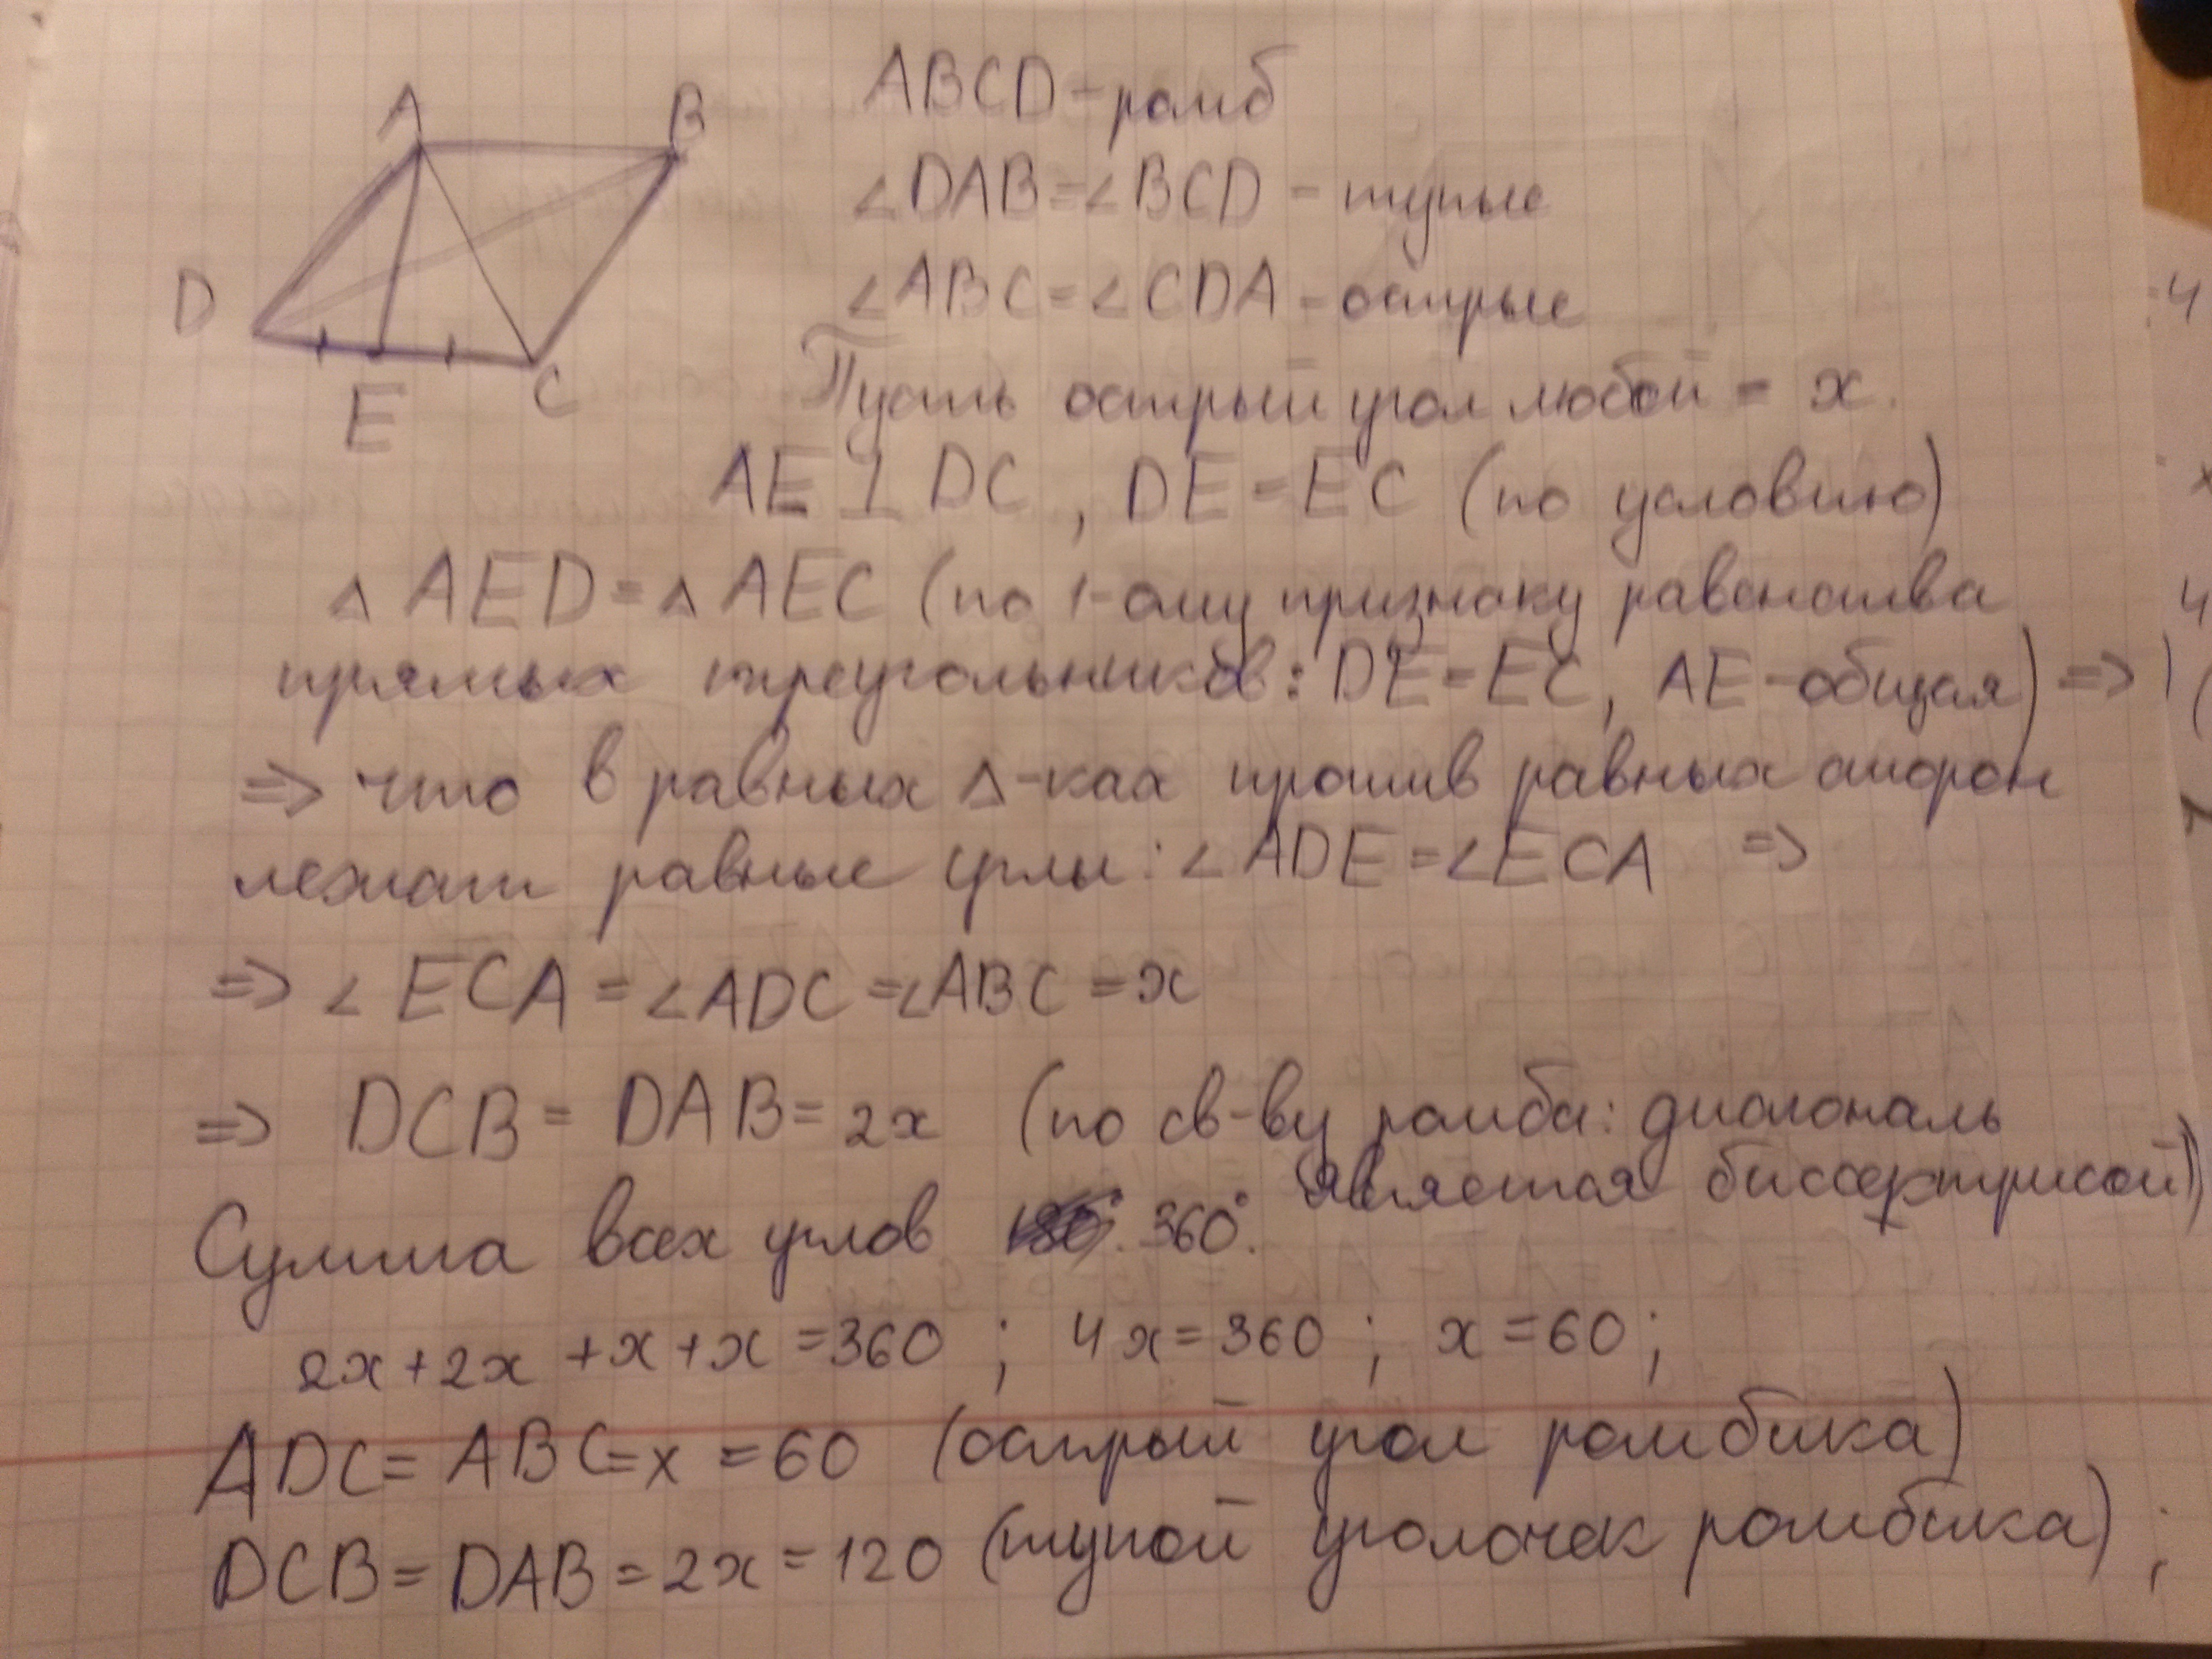 A
B
D
E
C
ABCD - ромб
∠DAB = ∠BCD - тупые
∠ABC = ∠CDA - острые
Пусть острый угол любой = x.
AE ⊥ DC, DE = EC (по условию)
△ AED = △ AEC (по 1-ому признаку равенства
прямых треугольников: DE = EC, AE - общая) =>
=> что в равных △-ках против равных сторон
лежат равные углы: ∠ADE = ∠ECA =>
=> ∠ECA = ∠ADC = ∠ABC = x
=> DCB = DAB = 2x (по св-ву ромба: диагональ
является биссектрисой)
Сумма всех углов 360°.
2x + 2x + x + x = 360 ; 4x = 360 ; x = 60 ;
ADC = ABC = x = 60 (острый угол ромбика)
DCB = DAB = 2x = 120 (тупой уголочек ромбика) ;